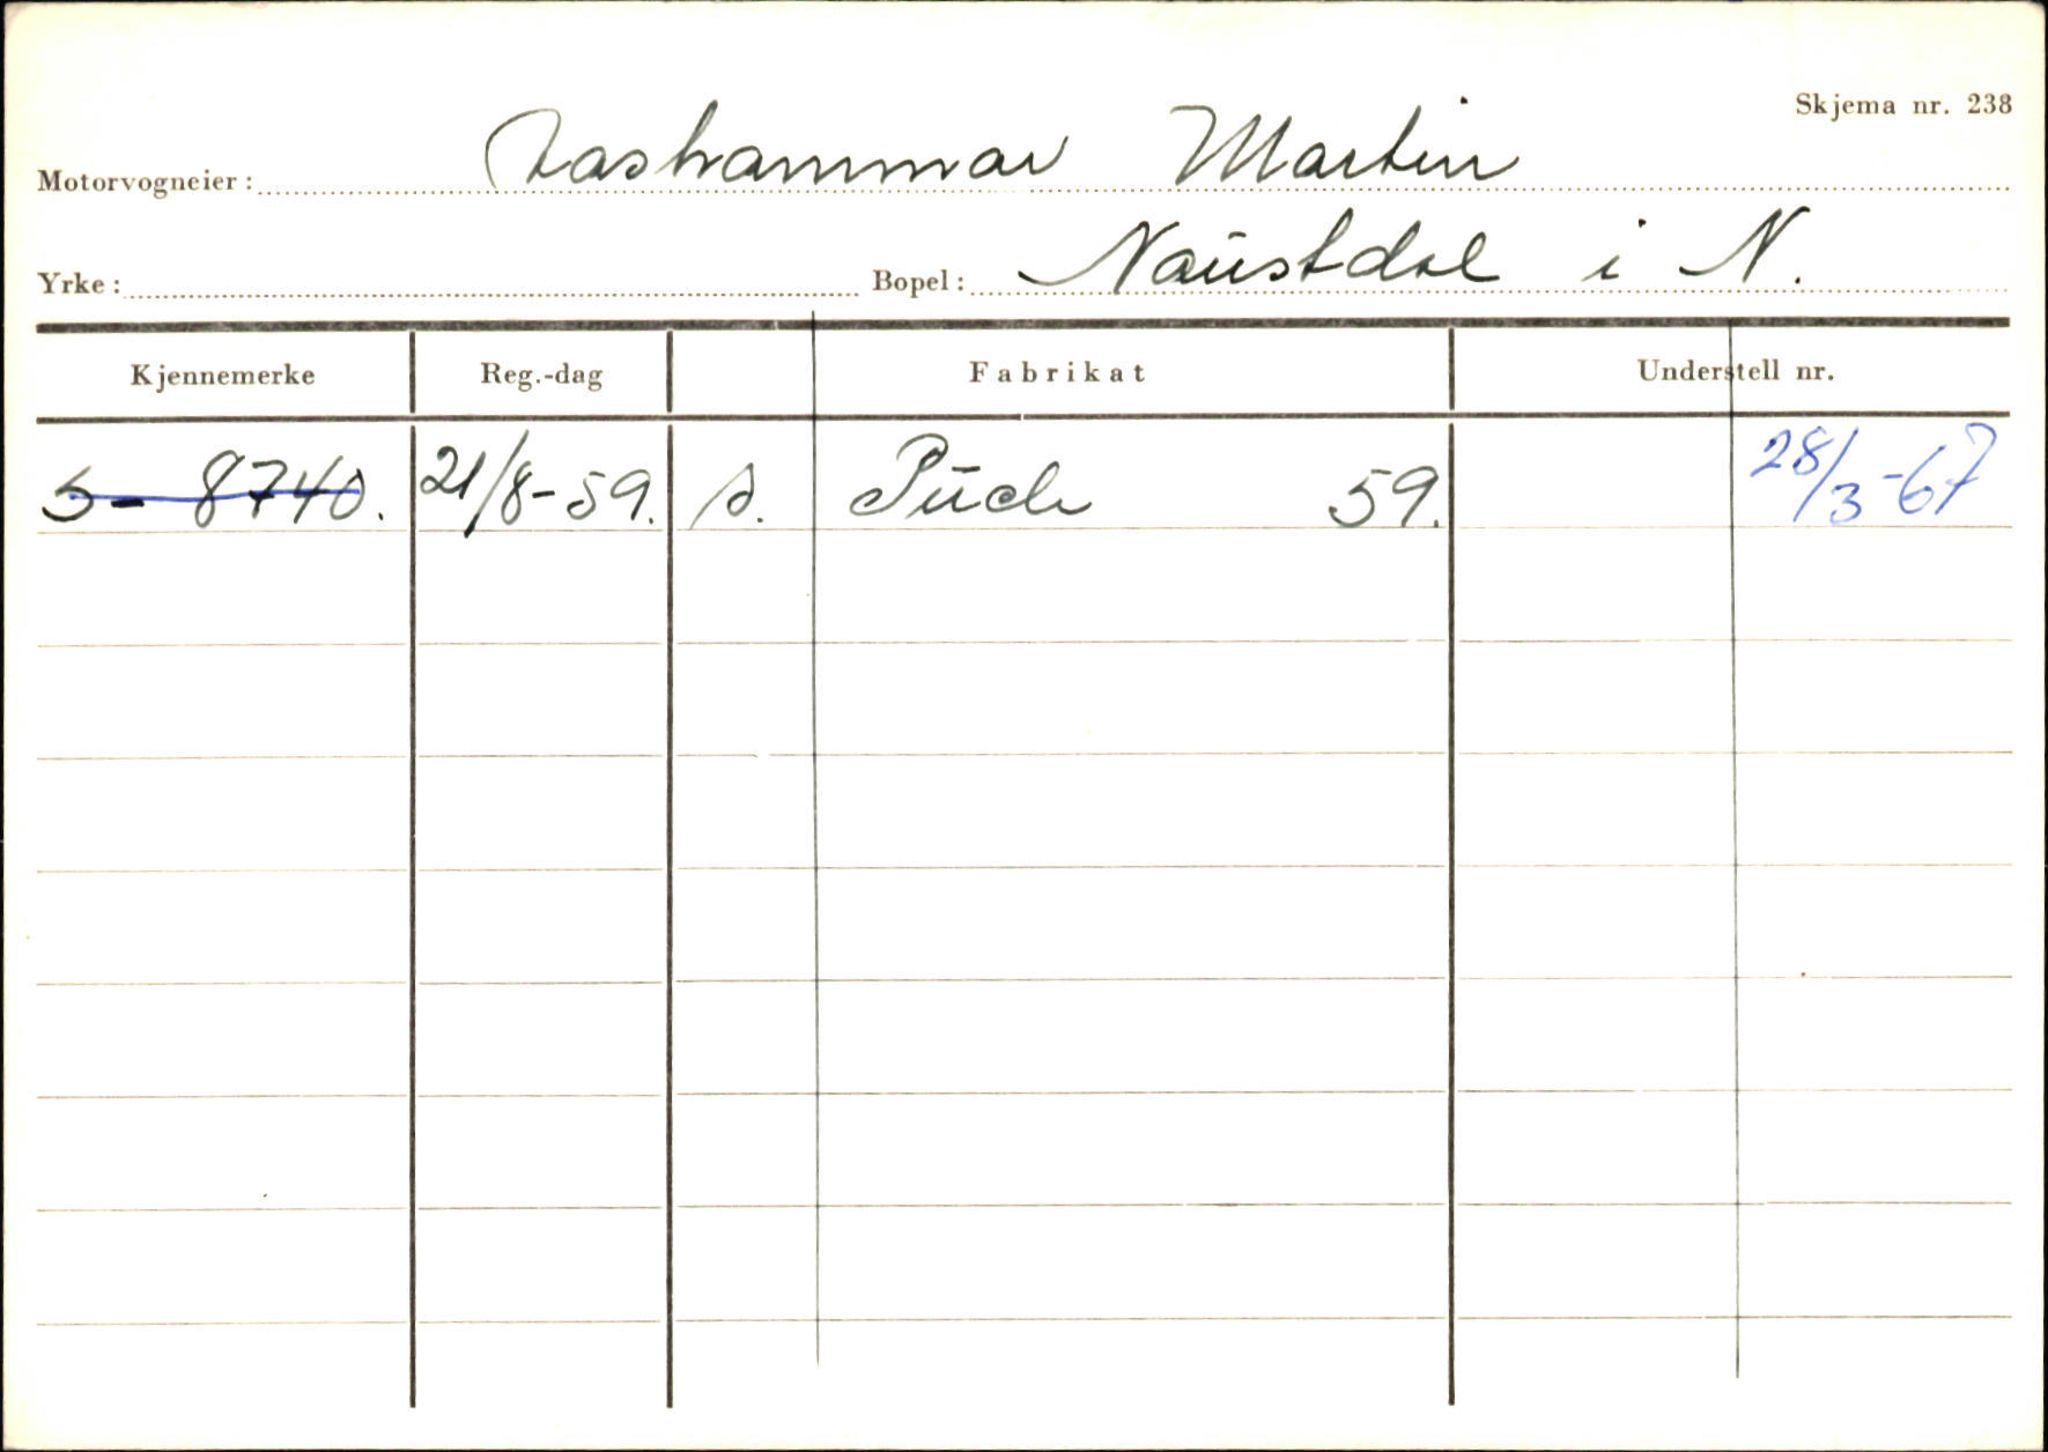 Skjema nr. 238
Motorvogneier: Tashammar Martin
Yrke: Bopel: Naustdal i N.
Kjennemerke Reg.-dag Fabrikat Understell nr.
S- 8740. 21/8-59. s. Puch 59. 28/3-67